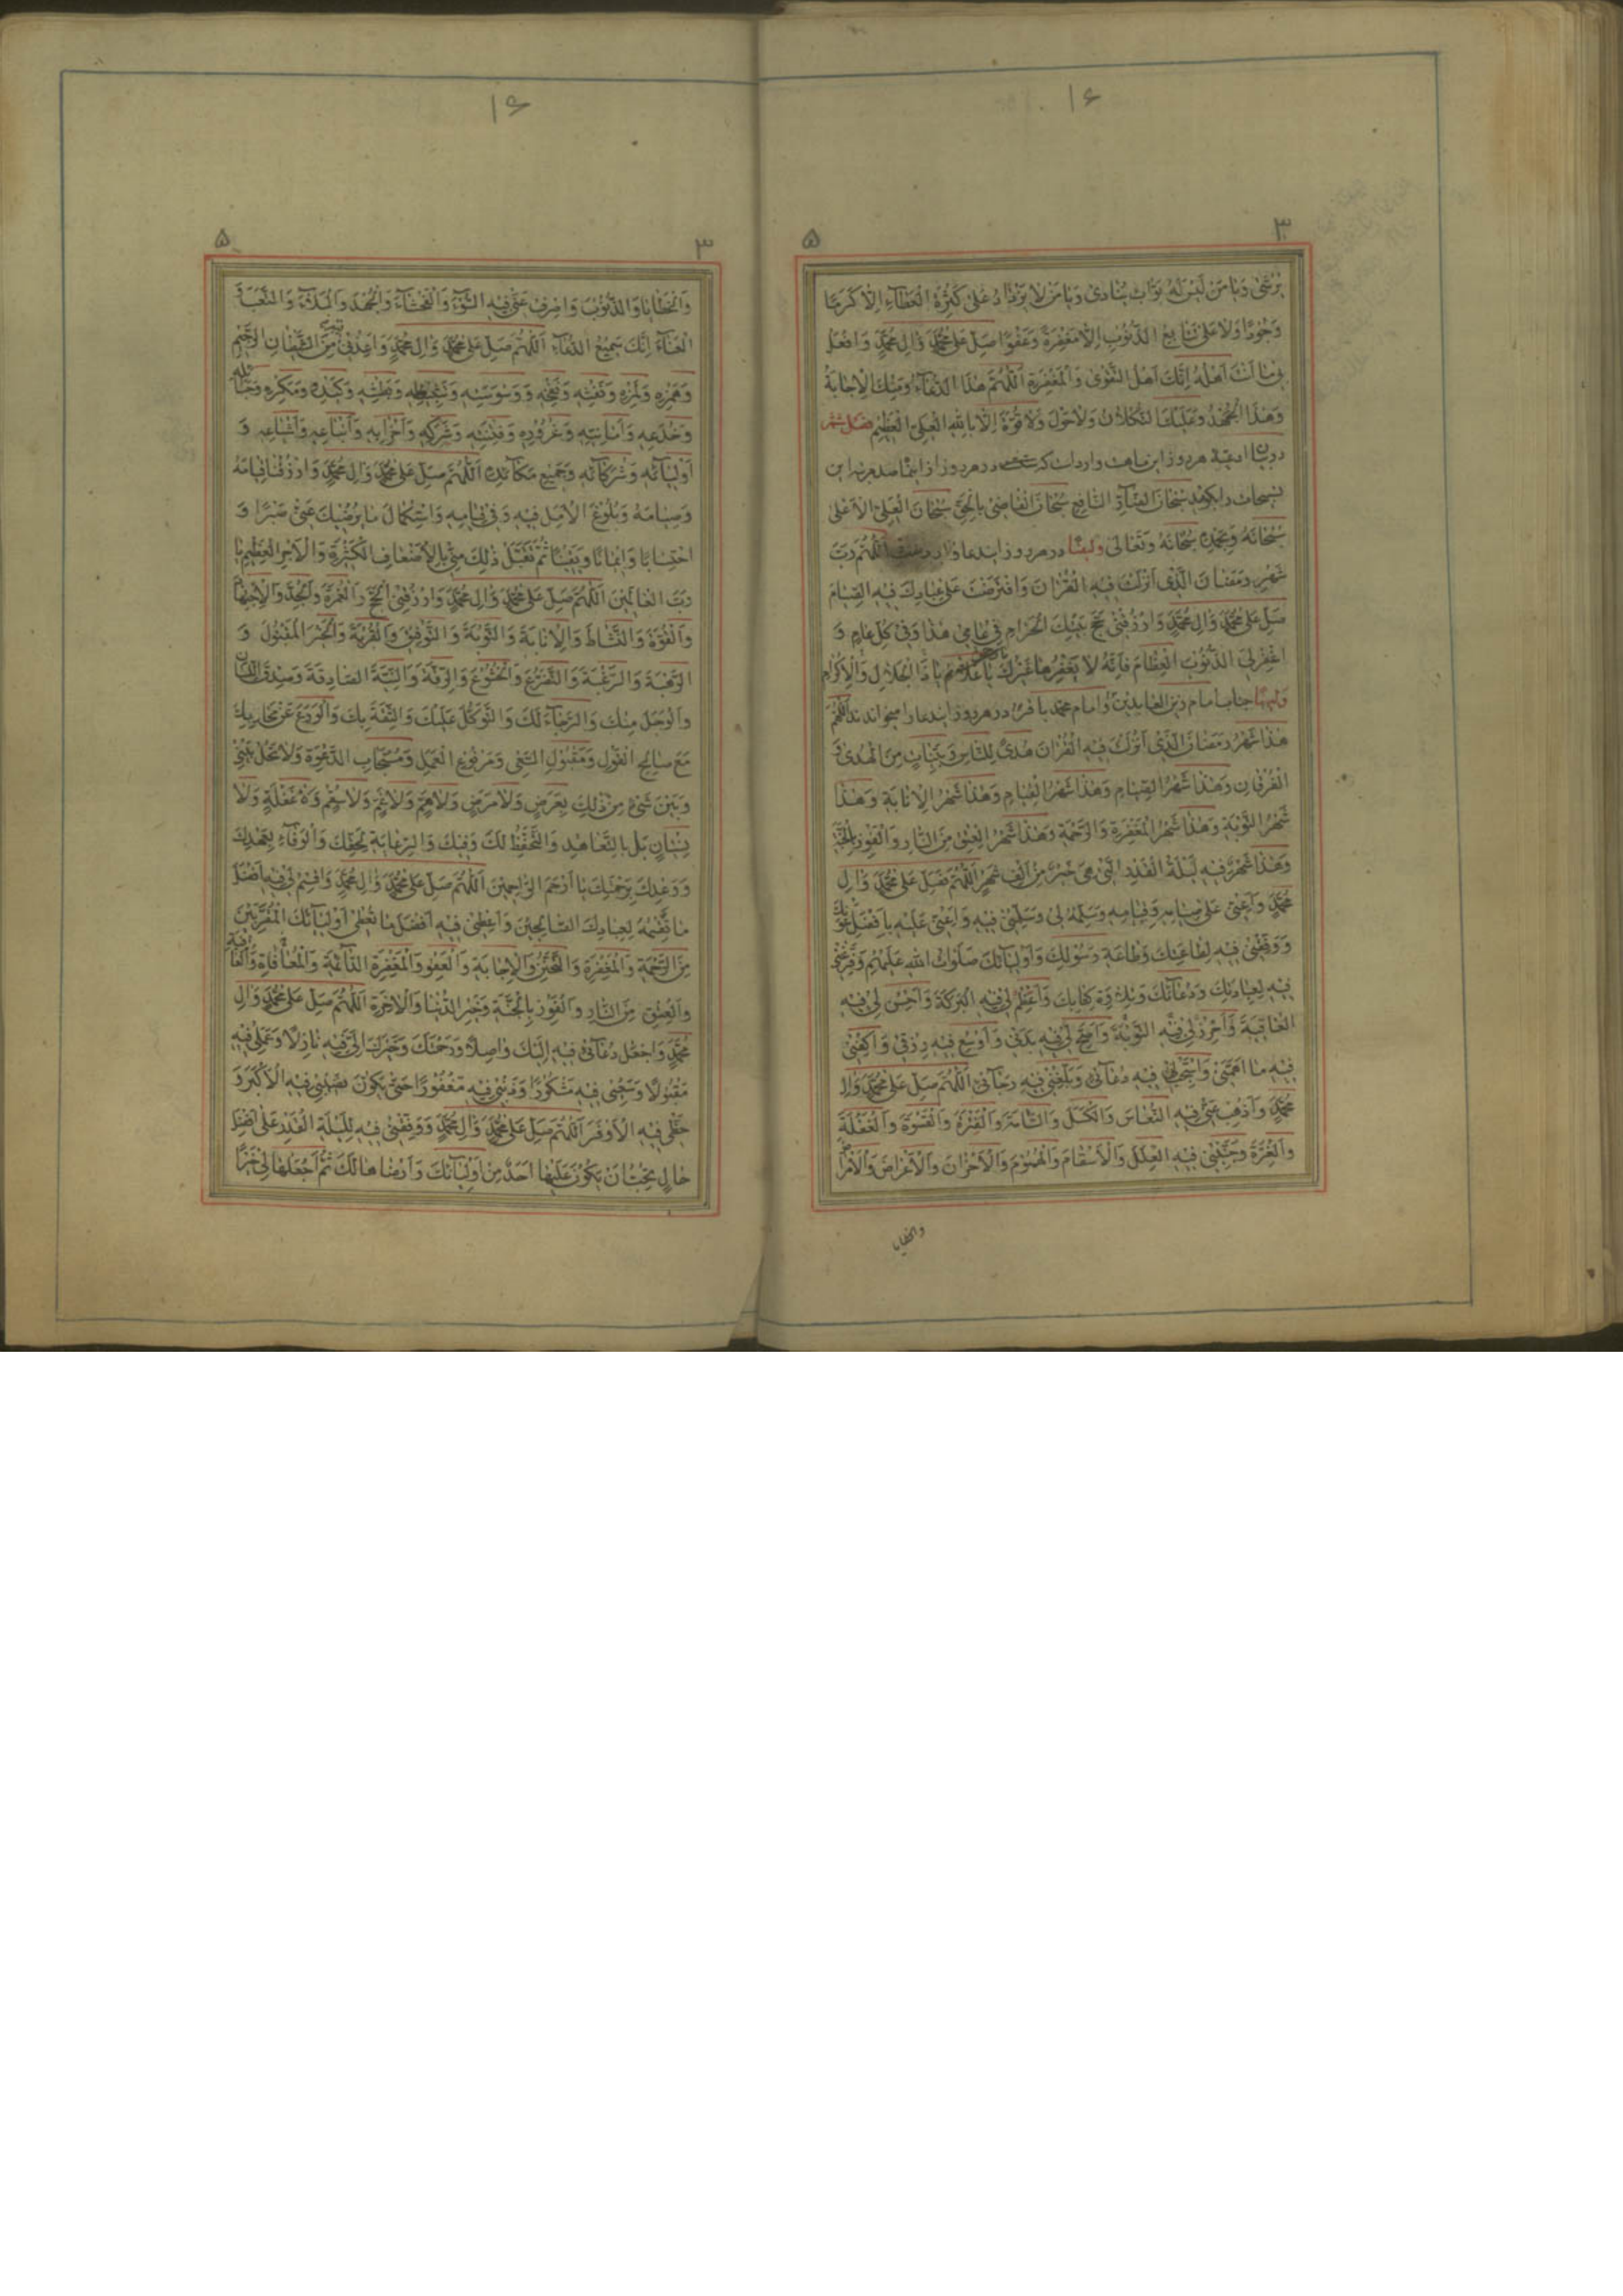 ۱۶
۳
۵
يُرْشىٰ وَيا مَنْ لَيْسَ لَهُ بَوّابٌ يُنادىٰ وَيا مَنْ لا يَزْدادُ عَلىٰ كَثْرَةِ الْعَطآءِ اِلّا كَرَمًا
وَجُودًا وَلا عَلىٰ تَتابُعِ الذُّنُوبِ اِلّا مَغْفِرَةً وَعَفْوًا صَلِّ عَلىٰ مُحَمَّدٍ وَاٰلِ مُحَمَّدٍ وَافْعَلْ
بى ما اَنْتَ اَهْلُهُ اِنَّكَ اَهْلُ التَّقْوىٰ وَالْمَغْفِرَةِ اَللّٰهُمَّ هٰذَا الدُّعآءُ وَمِنْكَ الْاِجابَةُ
وَهٰذَا الْجُهْدُ وَعَلَيْكَ التُّكْلانُ وَلا حَوْلَ وَلا قُوَّةَ اِلّا بِاللّٰهِ الْعَلِىِّ الْعَظيمِ فصل ششم
در ادعيه هر روز اين ماهست وارد است كه در هر روز از ايضا صد مرتبه اين
تسبيحات را بگويد سُبْحانَ الضّآرِّ النّافِعِ سُبْحانَ الْقاضى بِالْحَقِّ سُبْحانَ الْعَلِىِّ الْاَعْلىٰ
سُبْحانَهُ وَبِحَمْدِهِ سُبْحانَهُ وَتَعالىٰ وايضًا در هر روز ايندعا وارد اَللّٰهُمَّ رَبَّ
شَهْرِ رَمَضانَ الَّذى اَنْزَلْتَ فيهِ الْقُرْاٰنَ وَافْتَرَضْتَ عَلىٰ عِبادِكَ فيهِ الصِّيامَ
صَلِّ عَلىٰ مُحَمَّدٍ وَاٰلِ مُحَمَّدٍ وَارْزُقْنى حَجَّ بَيْتِكَ الْحَرامِ فى عامى هٰذا وَفى كُلِّ عامٍ وَ
اغْفِرْ لِىَ الذُّنُوبَ الْعِظامَ فَاِنَّهُ لا يَغْفِرُها غَيْرُكَ يا رحمن يا عَلّامُ يا ذَا الْجَلالِ وَالْاِكْرامِ
وايضًا جناب امام زين العابدين و امام محمد باقر در هر روز ايندعا را ميخواندند اَللّٰهُمَّ
هٰذا شَهْرُ رَمَضانَ الَّذى اَنْزَلْتَ فيهِ الْقُرْاٰنَ هُدًى لِلنّاسِ وَبَيِّناتٍ مِنَ الْهُدىٰ وَ
الْفُرْقانِ وَهٰذا شَهْرُ الصِّيامِ وَهٰذا شَهْرُ الْقِيامِ وَهٰذا شَهْرُ الْاِنابَةِ وَهٰذا
شَهْرُ التَّوْبَةِ وَهٰذا شَهْرُ الْمَغْفِرَةِ وَالرَّحْمَةِ وَهٰذا شَهْرُ الْعِتْقِ مِنَ النّارِ وَالْفَوْزِ بِالْجَنَّةِ
وَهٰذا شَهْرٌ فيهِ لَيْلَةُ الْقَدْرِ الَّتى هِىَ خَيْرٌ مِنْ اَلْفِ شَهْرٍ اَللّٰهُمَّ فَصَلِّ عَلىٰ مُحَمَّدٍ وَاٰلِ
مُحَمَّدٍ وَاَعِنّى عَلىٰ صِيامِهِ وَقِيامِهِ وَسَلِّمْهُ لى وَسَلِّمْنى فيهِ وَاَعِنّى عَلَيْهِ بِاَفْضَلِ عَوْنِكَ
وَوَفِّقْنى فيهِ لِطاعَتِكَ وَطاعَةِ رَسُولِكَ وَاَوْلِيآئِكَ صَلَواتُ اللّٰهِ عَلَيْهِمْ وَفَرِّغْنى
فيهِ لِعِبادَتِكَ وَدُعآئِكَ وَتِلاوَةِ كِتابِكَ وَاَعْظِمْ لى فيهِ الْبَرَكَةَ وَاَحْسِنْ لى فيهِ
الْعافِيَةَ وَاَحْرِزْ لى فيهِ التَّوْبَةَ وَاَصِحَّ لى فيهِ بَدَنى وَاَوْسِعْ فيهِ رِزْقى وَاكْفِنى
فيهِ ما اَهَمَّنى وَاسْتَجِبْ لى فيهِ دُعآئى وَبَلِّغْنى فيهِ رَجآئى اَللّٰهُمَّ صَلِّ عَلىٰ مُحَمَّدٍ وَاٰلِ
مُحَمَّدٍ وَاَذْهِبْ عَنّى فيهِ النُّعاسَ وَالْكَسَلَ وَالسَّاٰمَةَ وَالْفَتْرَةَ وَالْقَسْوَةَ وَالْغَفْلَةَ
وَالْغِرَّةَ وَجَنِّبْنى فيهِ الْعِلَلَ وَالْاَسْقامَ وَالْهُمُومَ وَالْاَحْزانَ وَالْاَعْراضَ وَالْاَمْراضَ
والخطايا
۱۶
۳
۵
وَالْخَطايا وَالذُّنُوبَ وَاصْرِفْ عَنّى فيهِ السُّوٓءَ وَالْفَحْشآءَ وَالْجَهْدَ وَالْبَلآءَ وَالتَّعَبَ وَ
الْعَنآءَ اِنَّكَ سَميعُ الدُّعآءِ اَللّٰهُمَّ صَلِّ عَلىٰ مُحَمَّدٍ وَاٰلِ مُحَمَّدٍ وَاَعِذْنى فيهِ مِنَ الشَّيْطانِ الرَّجيمِ
وَهَمْزِهِ وَلَمْزِهِ وَنَفْثِهِ وَنَفْخِهِ وَوَسْوَسَتِهِ وَتَثْبيطِهِ وَبَطْشِهِ وَكَيْدِهِ وَمَكْرِهِ وَحَبائِلِهِ
وَخُدَعِهِ وَاَمانِيِّهِ وَغُرُورِهِ وَفِتْنَتِهِ وَشَرَكِهِ وَاَحْزابِهِ وَاَتْباعِهِ وَاَشْياعِهِ وَ
اَوْلِيآئِهِ وَشُرَكآئِهِ وَجَميعِ مَكآئِدِهِ اَللّٰهُمَّ صَلِّ عَلىٰ مُحَمَّدٍ وَاٰلِ مُحَمَّدٍ وَارْزُقْنا قِيامَهُ
وَصِيامَهُ وَبُلُوغَ الْاَمَلِ فيهِ وَفى قِيامِهِ وَاسْتِكْمالَ ما يُرْضيكَ عَنّى صَبْرًا وَ
احْتِسابًا وَايمانًا وَيَقينًا ثُمَّ تَقَبَّلْ ذٰلِكَ مِنّى بِالْاَضْعافِ الْكَثيرَةِ وَالْاَجْرِ الْعَظيمِ يا
رَبَّ الْعالَمينَ اَللّٰهُمَّ صَلِّ عَلىٰ مُحَمَّدٍ وَاٰلِ مُحَمَّدٍ وَارْزُقْنِى الْحَجَّ وَالْعُمْرَةَ وَالْجِدَّ وَالْاِجْتِهادَ
وَالْقُوَّةَ وَالنَّشاطَ وَالْاِنابَةَ وَالتَّوْبَةَ وَالتَّوْفيقَ وَالْقُرْبَةَ وَالْخَيْرَ الْمَقْبُولَ وَ
الرَّهْبَةَ وَالرَّغْبَةَ وَالتَّضَرُّعَ وَالْخُشُوعَ وَالرِّقَّةَ وَالنِّيَّةَ الصّادِقَةَ وَصِدْقَ اللِّسانِ
وَالْوَجَلَ مِنْكَ وَالرَّجآءَ لَكَ وَالتَّوَكُّلَ عَلَيْكَ وَالثِّقَةَ بِكَ وَالْوَرَعَ عَنْ مَحارِمِكَ
مَعَ صالِحِ الْقَوْلِ وَمَقْبُولِ السَّعْىِ وَمَرْفُوعِ الْعَمَلِ وَمُسْتَجابِ الدَّعْوَةِ وَلا تَحُلْ بَيْنى
وَبَيْنَ شَىْءٍ مِنْ ذٰلِكَ بِعَرَضٍ وَلا مَرَضٍ وَلا هَمٍّ وَلا غَمٍّ وَلا سُقْمٍ وَلا غَفْلَةٍ وَلا
نِسْيانٍ بَلْ بِالتَّعاهُدِ وَالتَّحَفُّظِ لَكَ وَفيكَ وَالرِّعايَةِ لِحَقِّكَ وَالْوَفآءِ بِعَهْدِكَ
وَوَعْدِكَ بِرَحْمَتِكَ يا اَرْحَمَ الرّاحِمينَ اَللّٰهُمَّ صَلِّ عَلىٰ مُحَمَّدٍ وَاٰلِ مُحَمَّدٍ وَاقْسِمْ لى فيهِ اَفْضَلَ
ما تَقْسِمُهُ لِعِبادِكَ الصّالِحينَ وَاَعْطِنى فيهِ اَفْضَلَ ما تُعْطى اَوْلِيآئَكَ الْمُقَرَّبينَ
مِنَ الرَّحْمَةِ وَالْمَغْفِرَةِ وَالتَّحَنُّنِ وَالْاِجابَةِ وَالْعَفْوِ وَالْمَغْفِرَةِ الدّآئِمَةِ وَالْمُعافاةِ وَالْعافِيَةِ
وَالْعِتْقِ مِنَ النّارِ وَالْفَوْزِ بِالْجَنَّةِ وَخَيْرِ الدُّنْيا وَالْاٰخِرَةِ اَللّٰهُمَّ صَلِّ عَلىٰ مُحَمَّدٍ وَاٰلِ
مُحَمَّدٍ وَاجْعَلْ دُعآئى فيهِ اِلَيْكَ واصِلًا وَرَحْمَتَكَ وَخَيْرَكَ اِلَىَّ فيهِ نازِلًا وَعَمَلى فيهِ
مَقْبُولًا وَسَعْيى فيهِ مَشْكُورًا وَذَنْبى فيهِ مَغْفُورًا حَتّىٰ يَكُونَ نَصيبى فيهِ الْاَكْبَرَ وَ
حَظّى فيهِ الْاَوْفَرَ اَللّٰهُمَّ صَلِّ عَلىٰ مُحَمَّدٍ وَاٰلِ مُحَمَّدٍ وَوَفِّقْنى فيهِ لِلَيْلَةِ الْقَدْرِ عَلىٰ اَفْضَلِ
حالٍ تُحِبُّ اَنْ يَكُونَ عَلَيْها اَحَدٌ مِنْ اَوْلِيآئِكَ وَاَرْضاها لَكَ ثُمَّ اجْعَلْها لى خَيْرًا